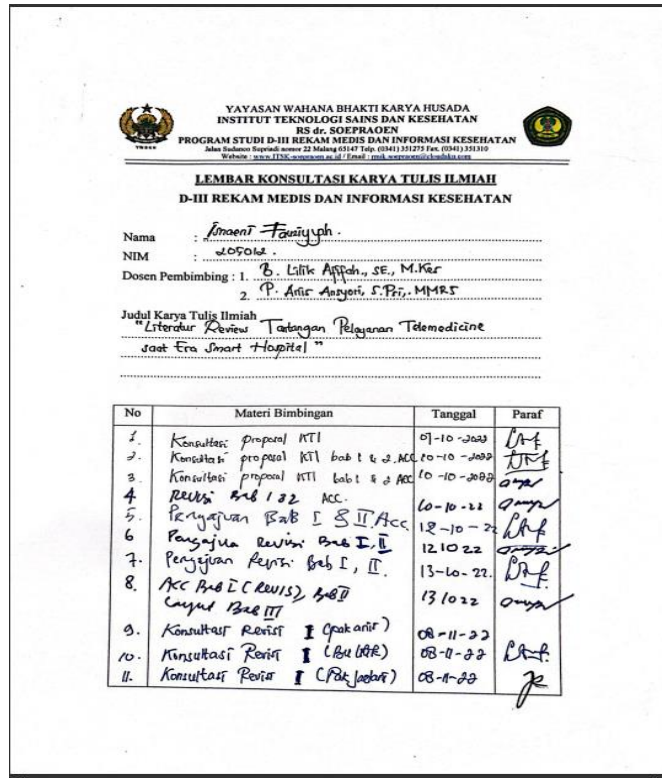 YAYASAN WAHANA BHAKTI KARYA HUSADA
INSTITUT TEKNOLOGI SAINS DAN KESEHATAN
RS dr. SOEPRAOEN
PROGRAM STUDI D-III REKAM MEDIS DAN INFORMASI KESEHATAN
Jalan Sudanco Supriadi nomor 22 Malang 65147 Telp. (0341) 351275 Fax. (0341) 351310
Website : www.ITSK-soepraoen.ac.id / Email :
LEMBAR KONSULTASI KARYA TULIS ILMIAH
D-III REKAM MEDIS DAN INFORMASI KESEHATAN
Nama : Ismaeni Fauziyyah .
NIM : 205012 .
Dosen Pembimbing : 1. B. Lilik Afifah., SE., M.Kes
2. P. Anis Ansyori, S.Psi,. MMRS
Judul Karya Tulis Ilmiah
"Literatur Review Tantangan Pelayanan Telemedicine
saat Era Smart Hospital"
No Materi Bimbingan Tanggal Paraf
1. Konsultasi proposal KTI 07-10-2022
2. Konsultasi proposal KTI bab 1 & 2. ACC 10-10-2022
3. Konsultasi proposal KTI bab 1 & 2 ACC 10-10-2022
4 Revisi Bab 1 & 2 ACC. 10-10-22
5. Pengajuan BaB I & II Acc 12-10-22
6 Pengajuan Revisi Bab I, II 121022
7. Pengajuan Revisi Bab I, II. 13-10-22.
8. ACC Bab I (Revis), Bab II
Lanjut Bab III 131022
9. Konsultasi Revisi I (pak anis) 08-11-22
10. Konsultasi Revisi I 08-11-22
11. Konsultasi Revisi I 08-11-22